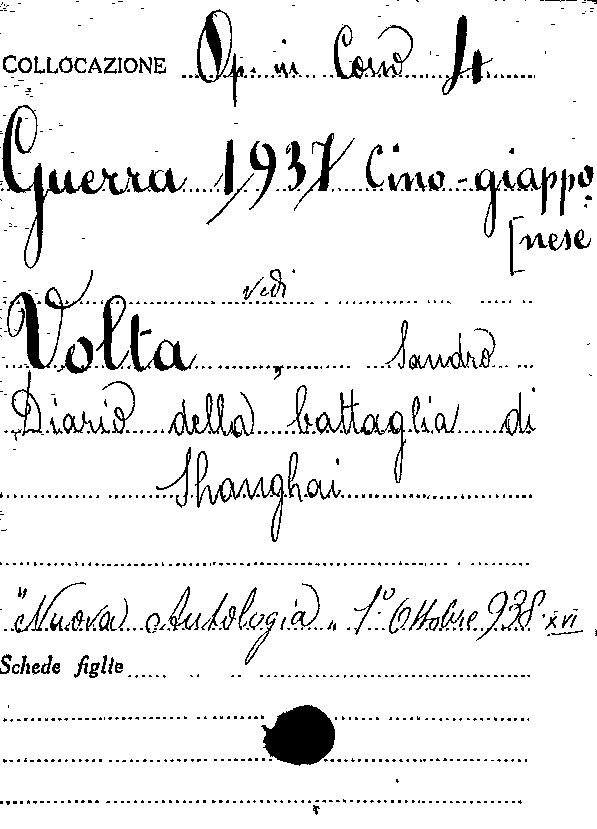 COLLOCAZIONE Op. in Corso 4
Guerra 1937 Cino-giappo
[nese
vedi
Volta, Sandro
Diario della battaglia di
Shanghai
"Nuova Antologia" 1° Ottobre 938. XVI
Schede figlie